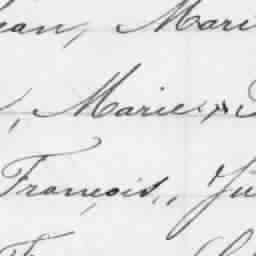 ean, Mari
, Marie,
François, Ju